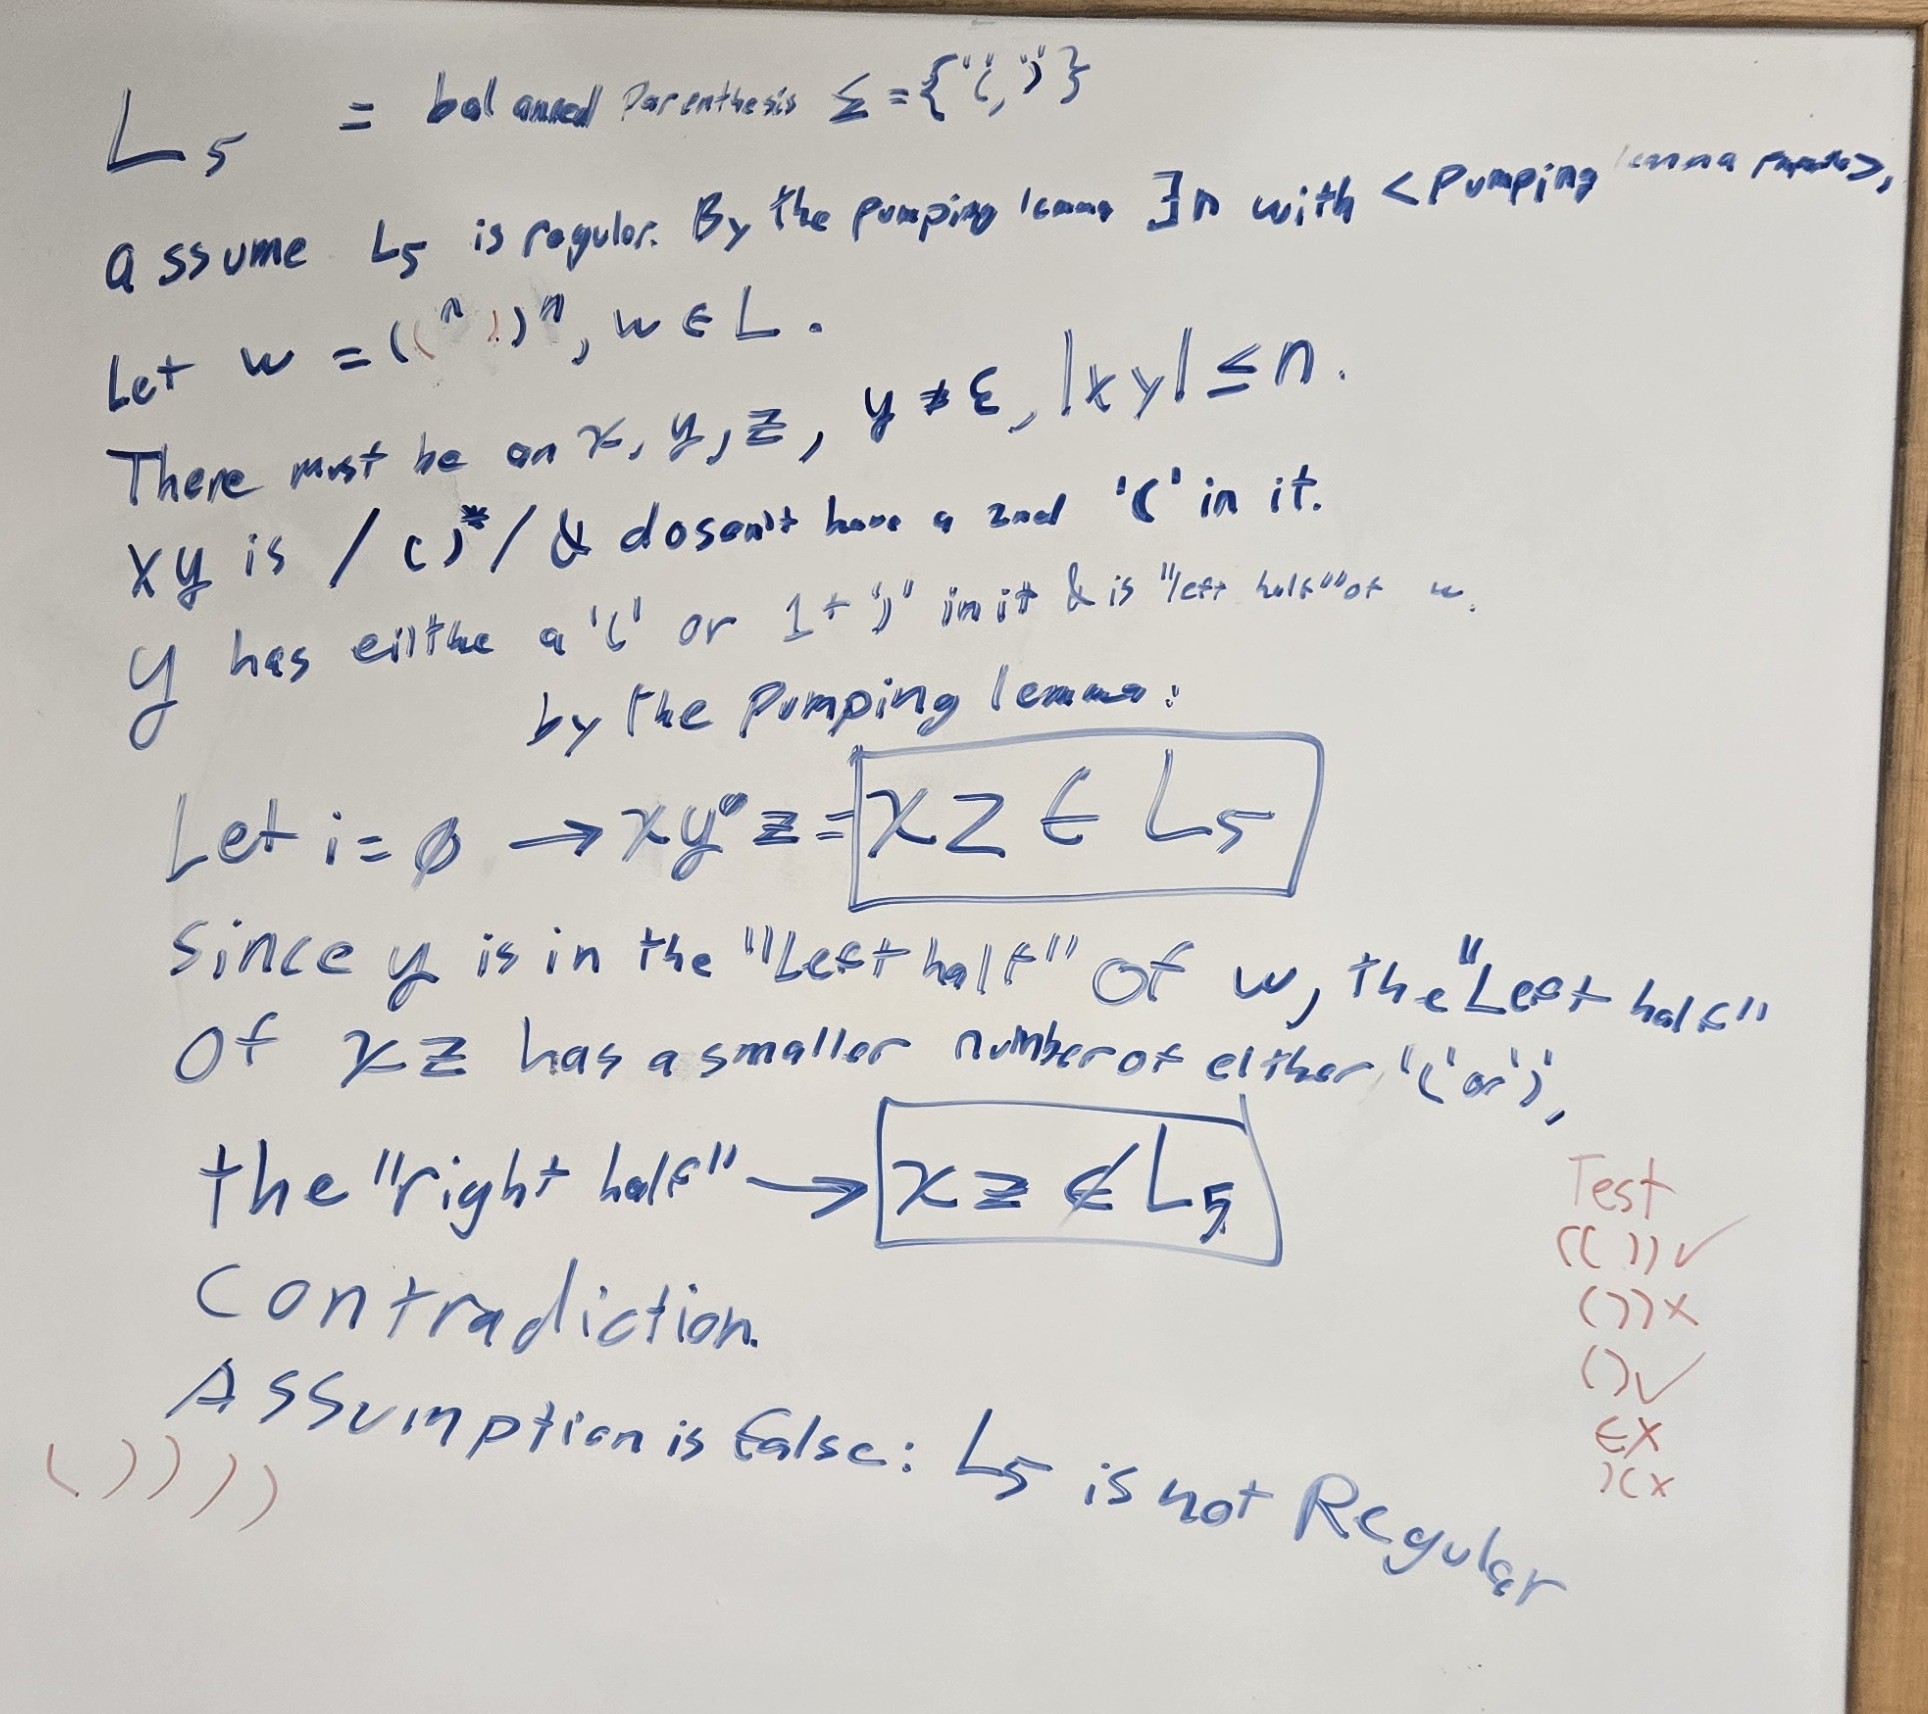 L₅ = balanced Parenthesis Σ = {"(, )"}
assume L₅ is regular. By the pumping lemma ∃n with <Pumping lemma >,
Let w = ((ⁿ ))ⁿ, w ∈ L.
There must be an x, y, z, y ≠ ε, |xy| ≤ n.
xy is /()*/ & dosen't have a 2nd '(' in it.
y has eilthe a '(' or 1+ ')' in it & is "left half" of w.
by the Pumping lemma:
Let i = ∅ → xy⁰z = xz ∈ L₅
since y is in the "Left half" of w, the "Left half"
of xz has a smaller number of either '(' or ')',
the "right half" → xz ∉ L₅
Contradiction.
Assumption is false: L₅ is not Regular
())))
Test
(( )) ✓
()) x
() ✓
ϵ x
)( x